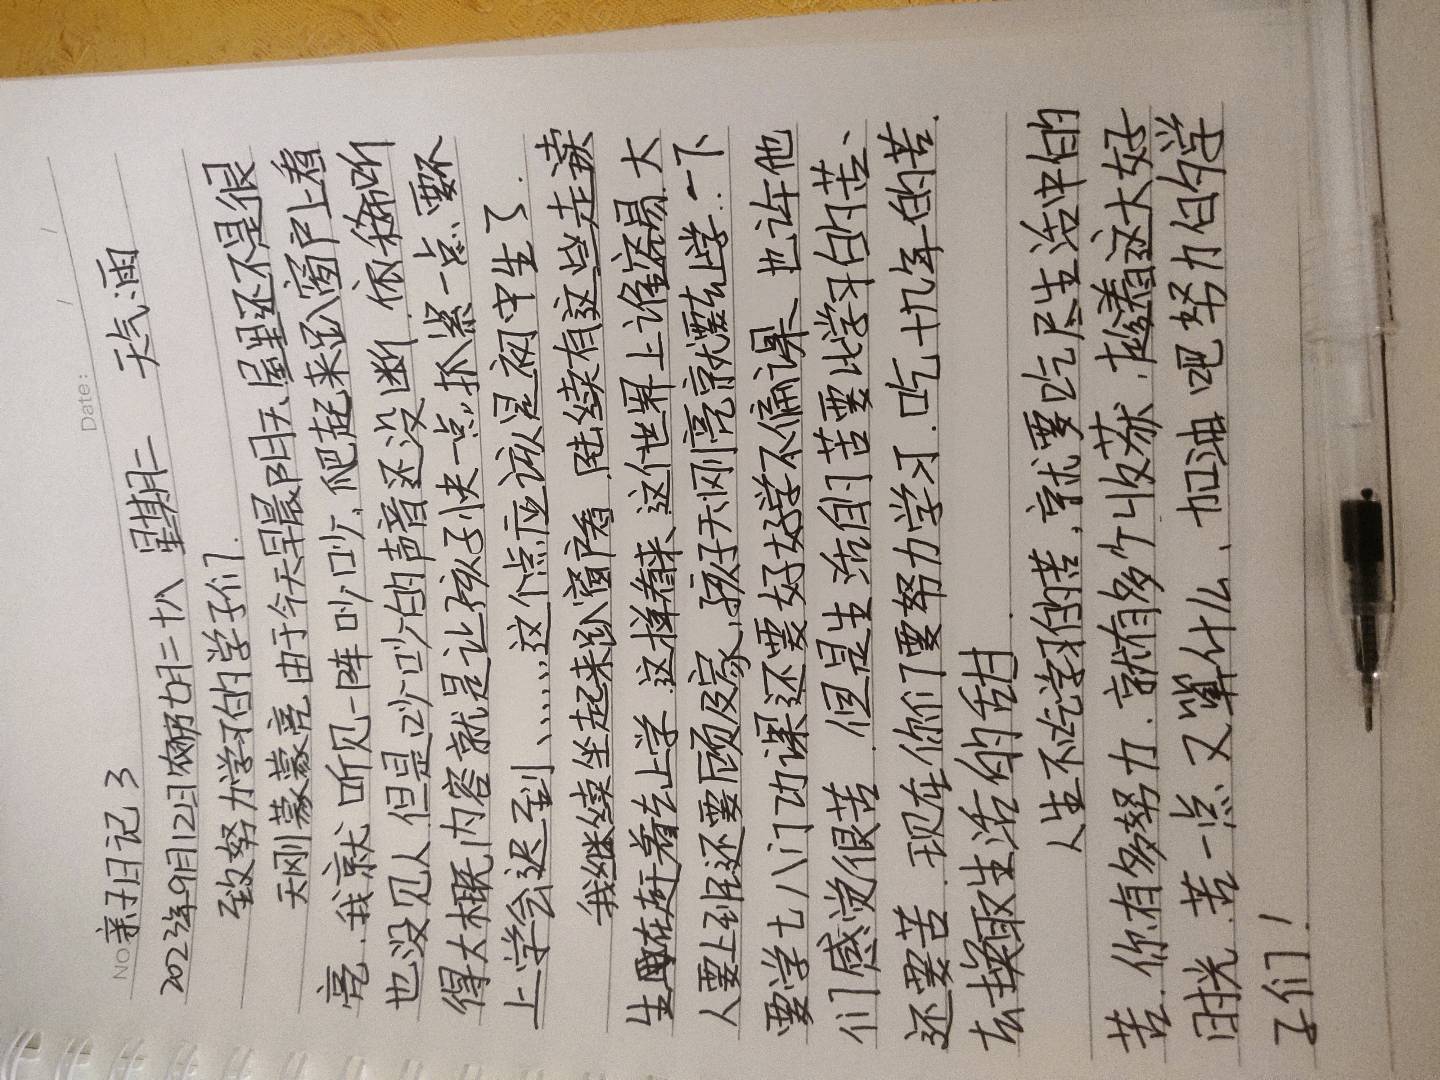 Date:
NO 亲子日记 3
2023年9月12日农历七月二十八 星期二 天气 雨
致努力学习的学子们.
天刚蒙蒙亮,由于今天早晨阴天,屋里还不是很
亮,我就听见一阵吵吵,爬起来趴窗户上看
也没见人,但是吵吵的声音还没断,依稀听
得大概内容就是让孩子快一点,抓紧一点,要不
上学会迟到、……这个点应该是初中生了.
我继续坐起来趴窗户看,陆续有这些走读
生在赶着去上学,这样看来,这个世界上谁容易,大
人要上班还要顾及家,孩子天刚亮就要去上学,一下
要学七八门功课还要好好学不偏课、也许他
们感觉很苦,但是生活的苦要比学习的苦、
还要苦,现在你们要努力学习.吃十九年的苦.
去换取生活的甜.
人生不吃学习的苦,就要吃尽生活中的
苦.你有多努力.就有多少收获,趁着这大好
时光,苦一点又算什么、加油吧努力的学
子们!